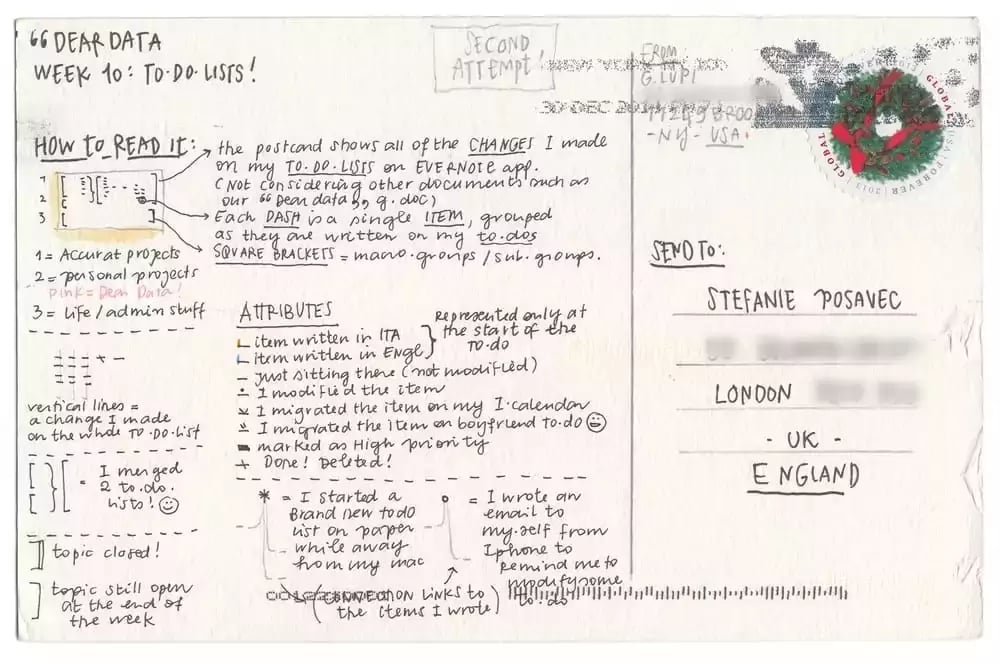 “ DEAR DATA
WEEK 10: TO·DO·LISTS!
SECOND
ATTEMPT!
HOW to READ It:
1
2
3
the postcard shows all of the CHANGES I made
on my TO·DO·LISTS on EVERNOTE app.
(Not considering other documents such as
our “ Dear data ,, g.doc)
Each DASH is a single ITEM, grouped
as they are written on my to.dos
SQUARE BRACKETS = macro.groups / sub.groups.
1 = Accurat projects
2 = personal projects
pink = Dear Data!
3 = life / admin stuff
vertical lines =
a change I made
on the whole TO·DO·LIST
= I merged
2 to.do.
lists!
topic closed!
topic still open
at the end of
the week
ATTRIBUTES
item written in ITA
item written in Engl
Represented only at
the start of the
to.do
just sitting there (not modified)
I modified the item
I migrated the item on my I.calendar
I migrated the item on boyfriend to.do
marked as High priority
Done! Deleted!
* = I started a
Brand new todo
list on paper
while away
from my mac
= I wrote an
email to
my.self from
Iphone to
remind me to
modify some
to.do
(CONNECTION LINKS to
the items I wrote)
FROM
G. LUPI
11249 BROO
- NY - USA.
30 DEC
GLOBAL
GLOBAL
FOREVER
2013
USA
SEND TO:
STEFANIE POSAVEC
LONDON
- UK -
ENGLAND